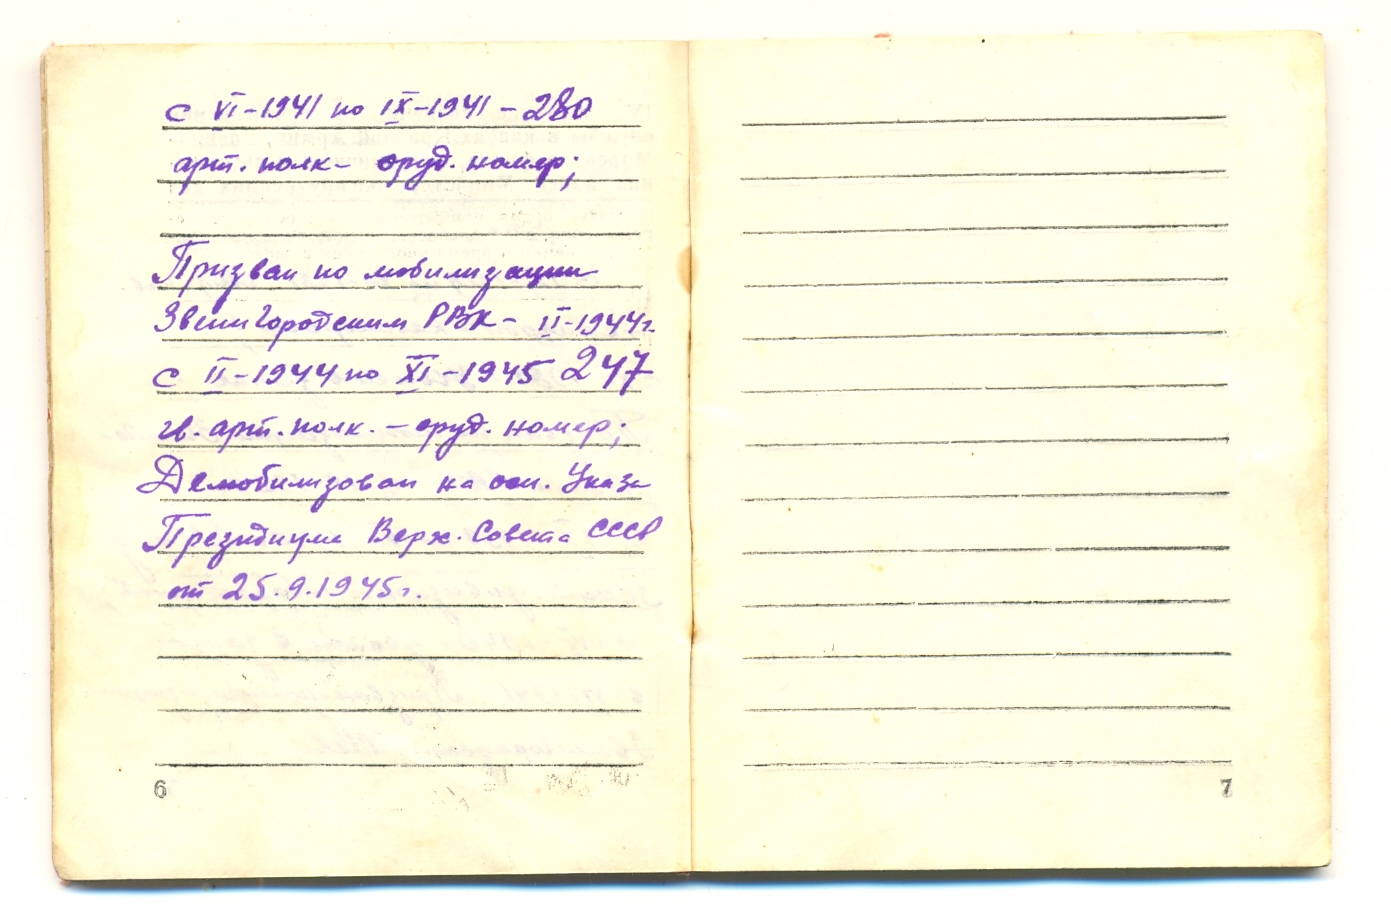 с VI-1941 по IX-1941 - 280
арт. полк - оруд. номер;
Призван по мобилизации
Звенигородским РВК - II-1944г.
с II-1944 по XI-1945 247
гв. арт. полк. - оруд. номер;
Демобилизован на осн. Указа
Президиума Верх. Совета СССР
от 25.9.1945г.
6
7